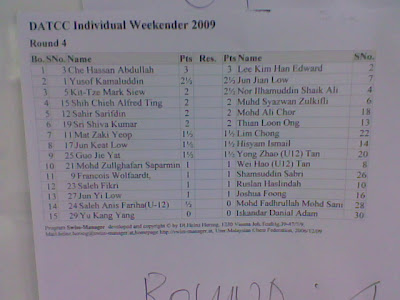 DATCC Individual Weekender 2009
Round 4
Bo. SNo. Name Pts Res. Pts Name SNo.
1 3 Che Hassan Abdullah 3 3 Lee Kim Han Edward 2
2 1 Yusof Kamaluddin 2½ 2½ Jun Jian Low 7
3 5 Kit-Tze Mark Siew 2 2½ Nor Ilhamuddin Shaik Ali 4
4 15 Shih Chieh Alfred Ting 2 2 Muhd Syazwan Zulkifli 6
5 12 Sahir Sarifdin 2 2 Mohd Ali Chor 18
6 19 Sri Shiva Kumar 2 2 Thian Loon Ong 13
7 11 Mat Zaki Yeop 1½ 1½ Lim Chong 22
8 17 Jun Keat Low 1½ 1½ Hisyam Ismail 14
9 25 Guo Jie Yat 1½ 1½ Yong Zhao (U12) Tan 20
10 21 Mohd Zullghafari Saparmun 1 1 Wei Hao (U12) Tan 8
11 9 Francois Wolfaardt, 1 1 Shamsuddin Sabri 26
12 23 Saleh Fikri 1 1 Ruslan Haslindah 10
13 27 Jun Yi Low 1 1 Joshua Foong 16
14 24 Saleh Anis Fariha(U-12) ½ 0 Mohd Fadhrullah Mohd Sani 28
15 29 Yu Kang Yang 0 0 Iskandar Danial Adam 30
Program Swiss-Manager developed and copyright © by DI.Heinz Herzog,